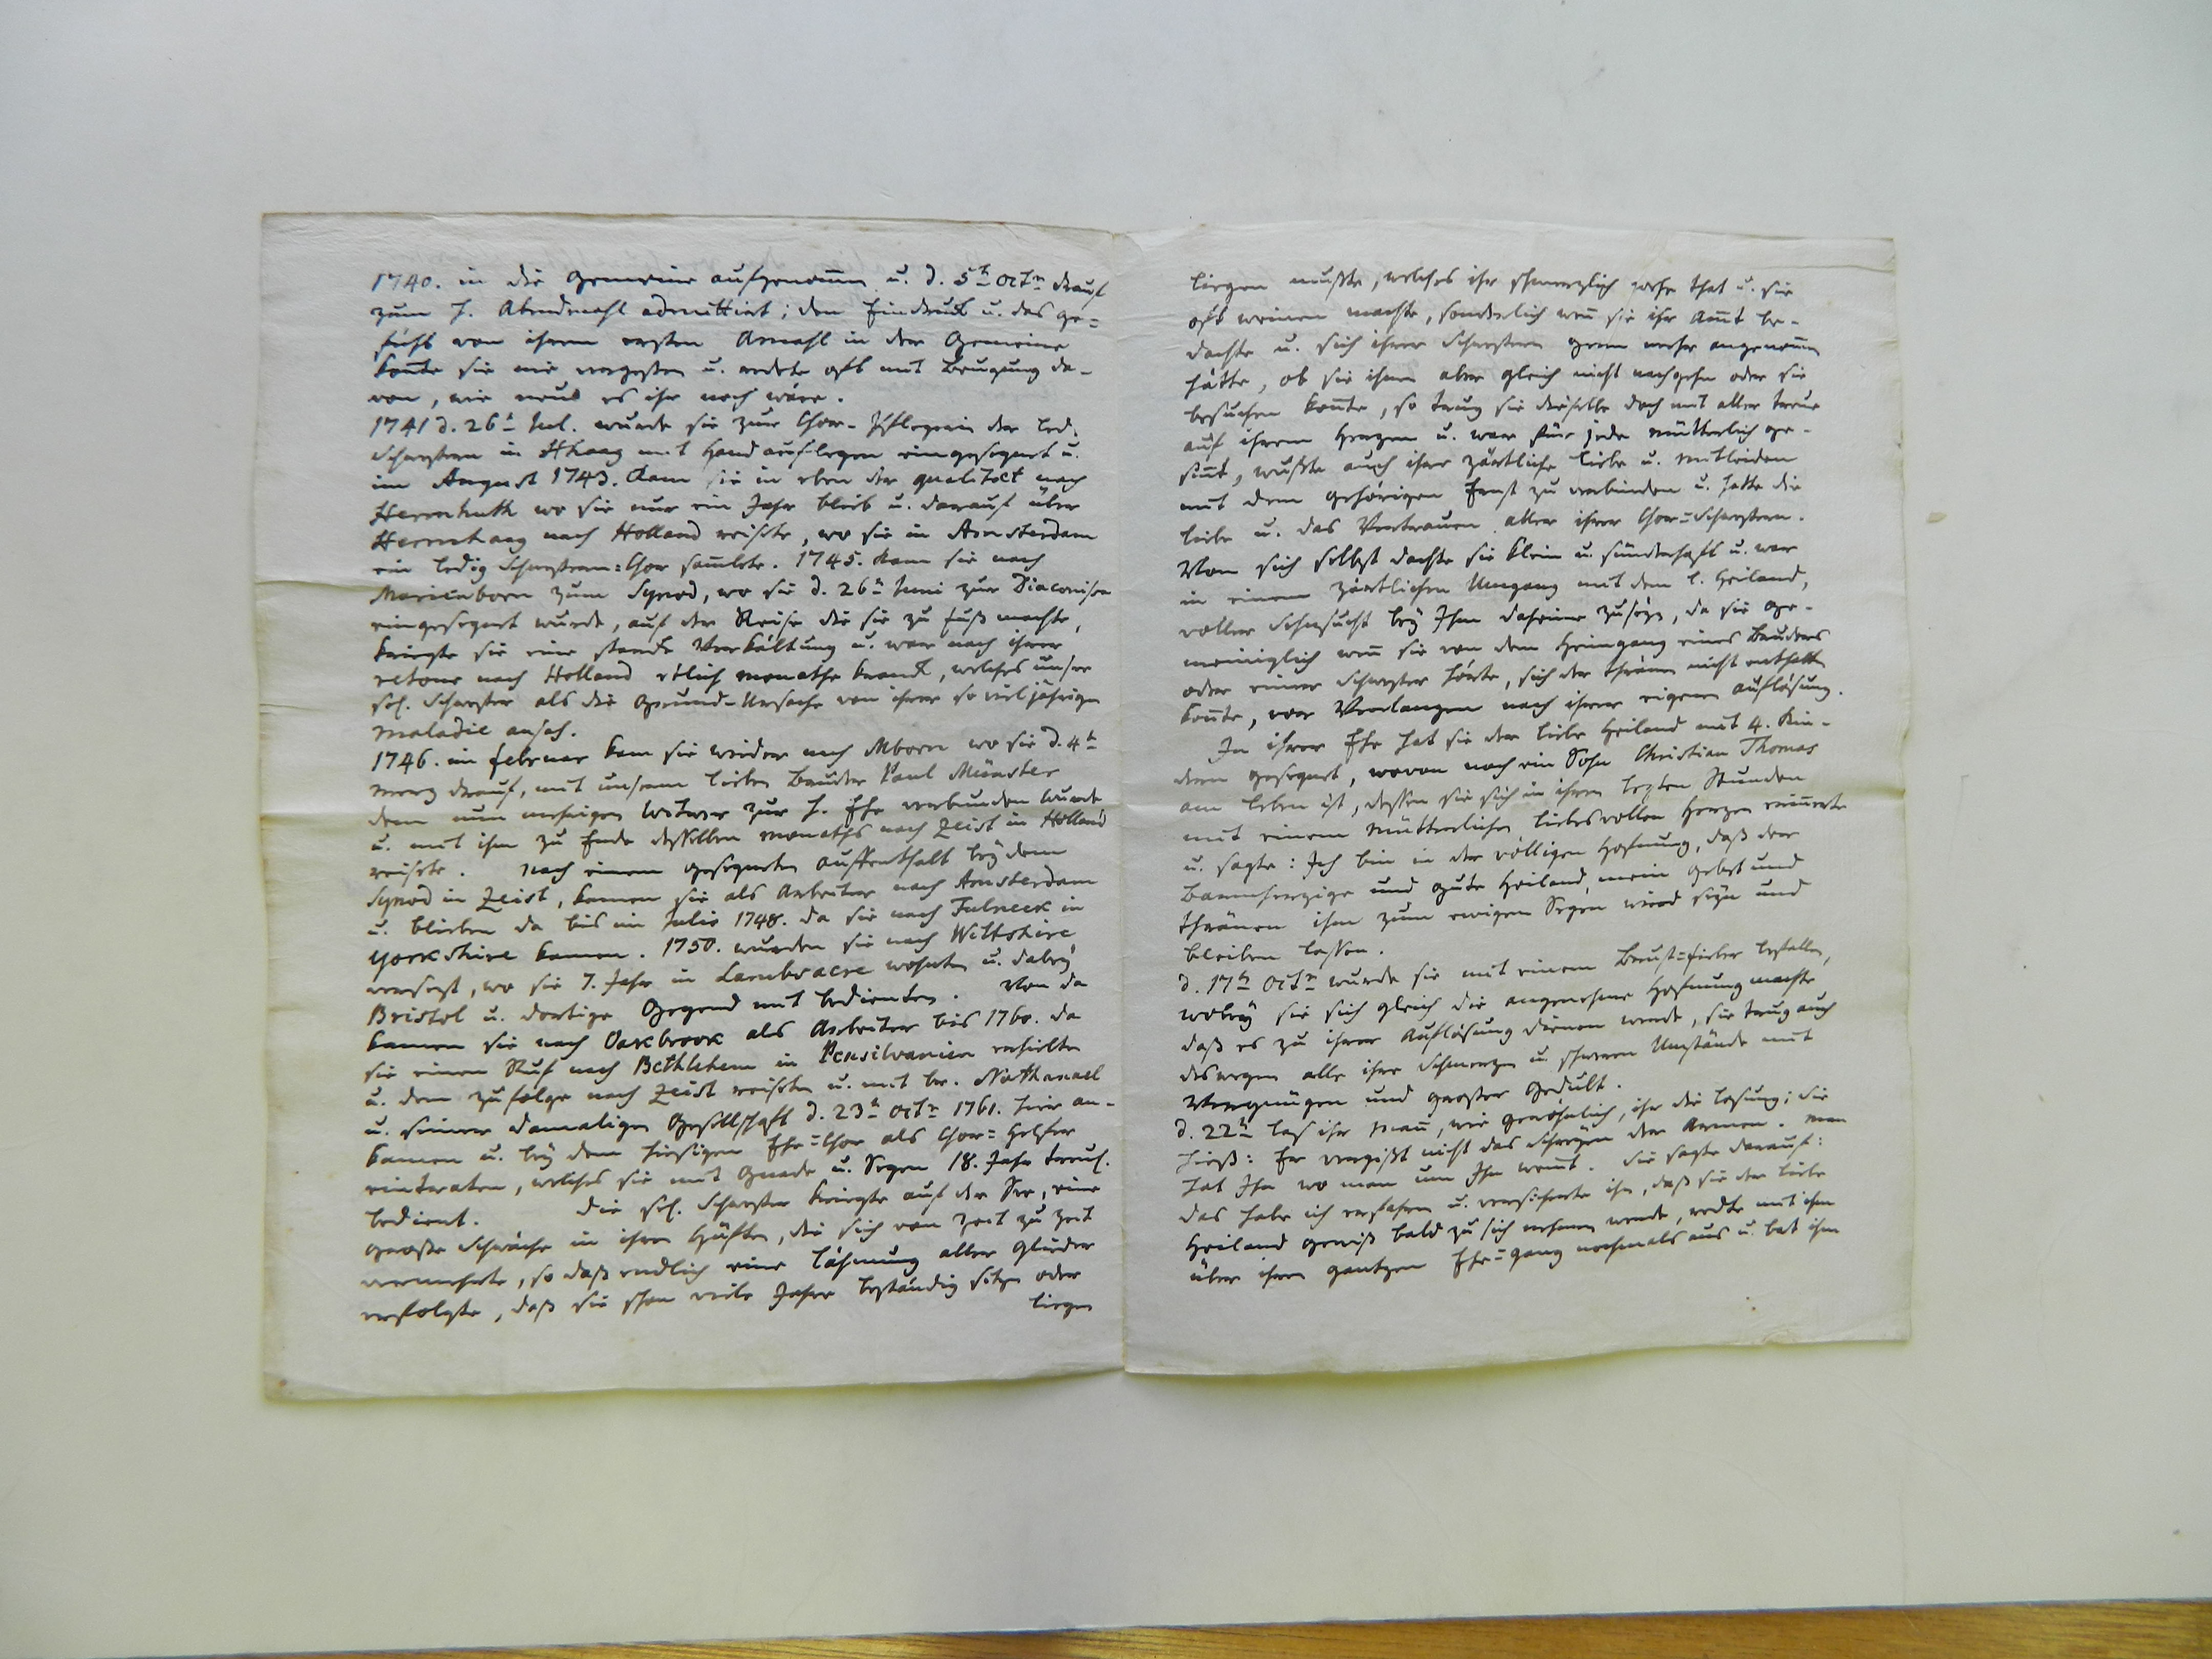 1740. in die Gemeine aufgenom̄en u. d. 5t Octr drauf
zum h. Abendmahl admittirt; den Eindruck u. das ge=
fühl von ihrem ersten Abmahl in der Gemeine
kon̄te sie nie vergessen u. redete oft mit Beugung da-
von, wie neu es ihr noch wäre.
1741 d. 26t Jul. wurde sie zur Chor-Pflegerin der led.
Schwestern in Hhaag mit Handauflegen eingesegnet u.
im August 1743. kam sie in eben der qualitaet nach
Herrnhuth wo sie nur ein Jahr blieb u. darauf über
Herrnhaag nach Holland reiste, wo sie in Amsterdam
ein ledig Schwestern=Chor sam̄lete. 1745. kam sie nach
Marienborn zum Synod, wo sie d. 26t Juni zur Diaconissa
eingesegnet wurde, auf der Reise die sie zu fuß machte,
kriegte sie eine starcke Verkältung u. war nach ihrer
retour nach Holland etlich monathe kranck, welches unsre
sel. Schwester als die Grund-Ursache von ihrer so vieljährigen
Maladie ansah.
1746. im Februar kam sie wieder nach Mborn wo sie d. 4t
Merz drauf, mit unserm lieben Bruder Paul Münster
dem nun mehrigen Witwer zur h. Ehe verbunden wurde
u. mit ihm zu Ende desselben monaths nach Zeist in Holland
reiste. Nach einem gesegneten auffenthalt bey dem
Synod in Zeist, kamen sie als Arbeiter nach Amsterdam
u. blieben da bis im Julio 1748. da sie nach Fulneck in
Yorkshire kamen. 1750. wurden sie nach Wiltshire
versezt, wo sie 7. Jahr in wohnten u. dabey
Bristol u. dortige Gegend mit bedienten. Von da
kamen sie nach Oakbrook als Arbeiter bis 1760. da
sie einen Ruf nach Bethlehem in Pensilvanien erhielten
u. dem zufolge nach Zeist reisten u. mit br. Nathanael
u. seiner damaligen Gesellschaft d. 23t Octr 1761. hier an-
kamen u. bey dem hiesigen Ehe=Chor als Chor=Helfer
eintraten, welches sie mit Gnade u. Segen 18. Jahr treul.
bedient. Die sel. Schwester kriegte auf der See, eine
große Schwäche in ihren Hüften, die sich von Zeit zu Zeit
vermehrte, so daß endlich eine lähmung aller Glieder
erfolgte, daß sie schon viele Jahre beständig sitzen oder
liegen
liegen mußte, welches ihr schmerzlich wehe that u. sie
oft weinen machte, sonderlich wen̄ sie ihr Amt be-
dachte u. sich ihrer Schwestern gern mehr angenom̄en
hätte, ob sie ihnen aber gleich nicht nachgehn oder sie
besuchen kon̄te, so trug sie dieselbe doch mit aller treue
auf ihrem Herzen u. war für jede mütterlich ge-
sin̄t, wußte auch ihre zärtliche Liebe u. Mitleiden
mit dem gehörigen Ernst zu verbinden u. hatte die
Liebe u. das Vertrauen aller ihrer Chor=Schwestern.
Von sich selbst dachte sie klein u. sünderhaft u. war
in einem zärtlichen Umgang mit dem l. Heiland,
voller Sehnsucht bey Ihm daheime zu seyn, da sie ge-
meiniglich wen̄ sie von dem Heimgang eines Bruders
oder einer Schwester hörte, sich der thränen nicht enthalten
kon̄te, vor Verlangen nach ihrer eigenen auflösung.
In ihrer Ehe hat sie der liebe Heiland mit 4. Kin-
dern gesegnet, wovon noch ein Sohn Christian Thomas
am leben ist, dessen sie sich in ihren lezten Stunden
mit einem Mütterlichen liebesvollen Herzen erin̄erte
u. sagte: Ich bin in der völligen Hofnung, daß der
barmherzige und gute Heiland, mein Gebet und
thränen ihm zum ewigen Segen wird seyn und
bleiben lassen.
d. 17t Octr wurde sie mit einem Brust=fieber befallen,
wobey sie sich gleich die angenehme Hofnung machte
daß es zu ihrer Auflösung dienen werde, sie trug auch
deswegen alle ihre Schmerzen u. schweren Umstände mit
Vergnügen und großer Gedult.
d. 22t las ihr Man̄, wie gewöhnlich, ihr die losung; die
hieß: Er vergißt nicht das Schreyen der Armen. Man
hat Ihn wo man um Ihn weint. Sie sagte darauf:
das habe ich erfahren u. versicherte ihn, daß sie der liebe
Heiland gewiß bald zu sich nehmen werde, redte mit ihm
über ihren gantzen Ehe=gang nochmals aus u. bat ihn